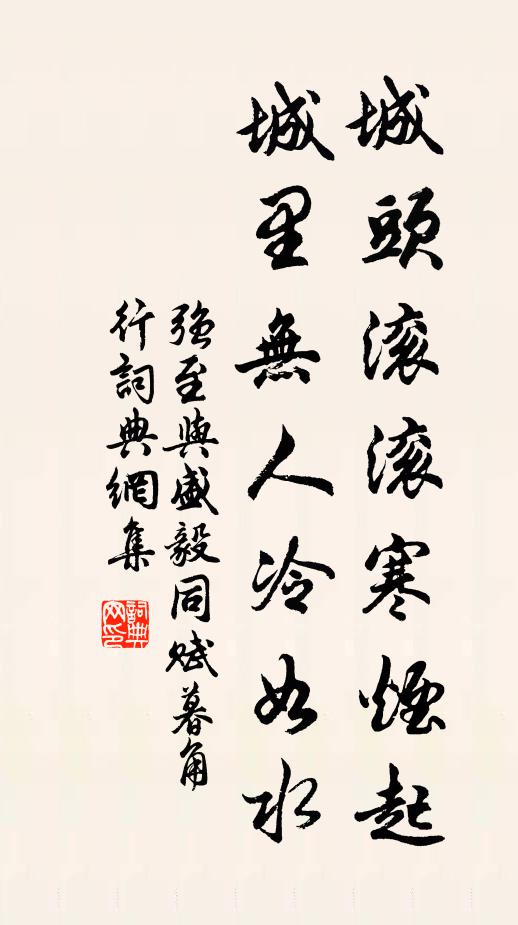 城頭滚滚寒煙起
城里無人冷如水
强至與盛毅同賦暮角
行詞典網集
詞典网印